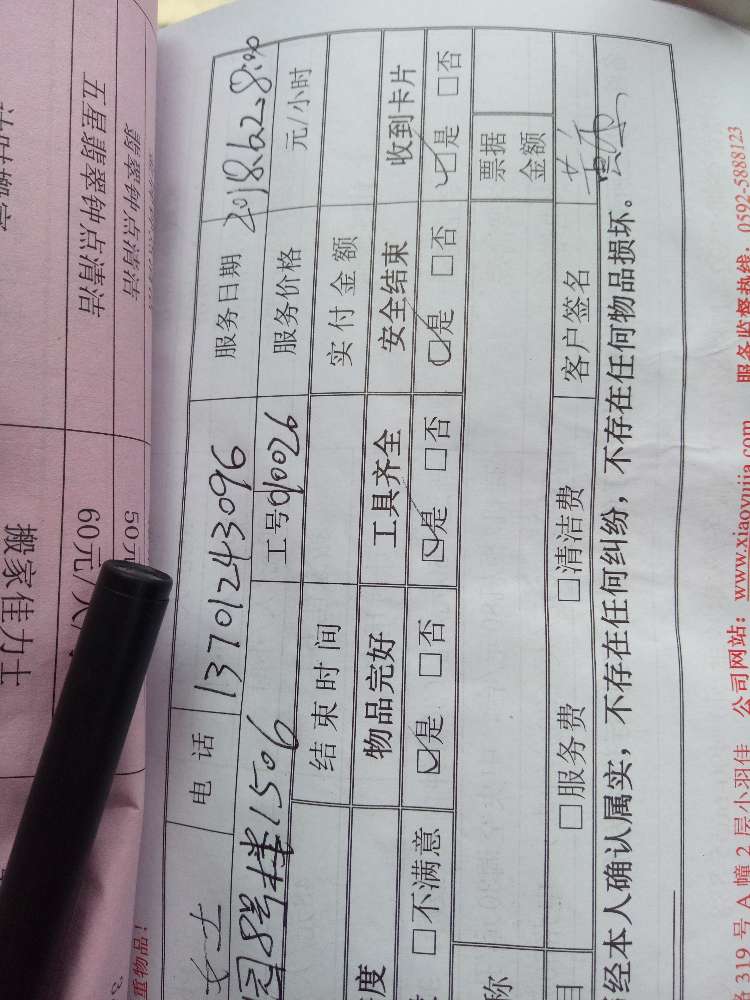 翡翠钟点清洁
50元
五星翡翠钟点清洁
60元/
搬家佳力士
重物品!
女士 电话 13701243096 服务日期 2018.6.22.8:00
园8号楼1506 工号 010026 服务价格 元/小时
结束时间 实付金额
度 物品完好 工具齐全 安全结束 收到卡片
□不满意 ☑是 □否 ☑是 □否 ☑是 □否 ☑是 □否
称 票据金额
目 □服务费 □清洁费 客户签名
经本人确认属实,不存在任何纠纷,不存在任何物品损坏。
319号A幢2层小羽佳 公司网站:www.xiaoyujia.com 服务监督热线:0592-5888123